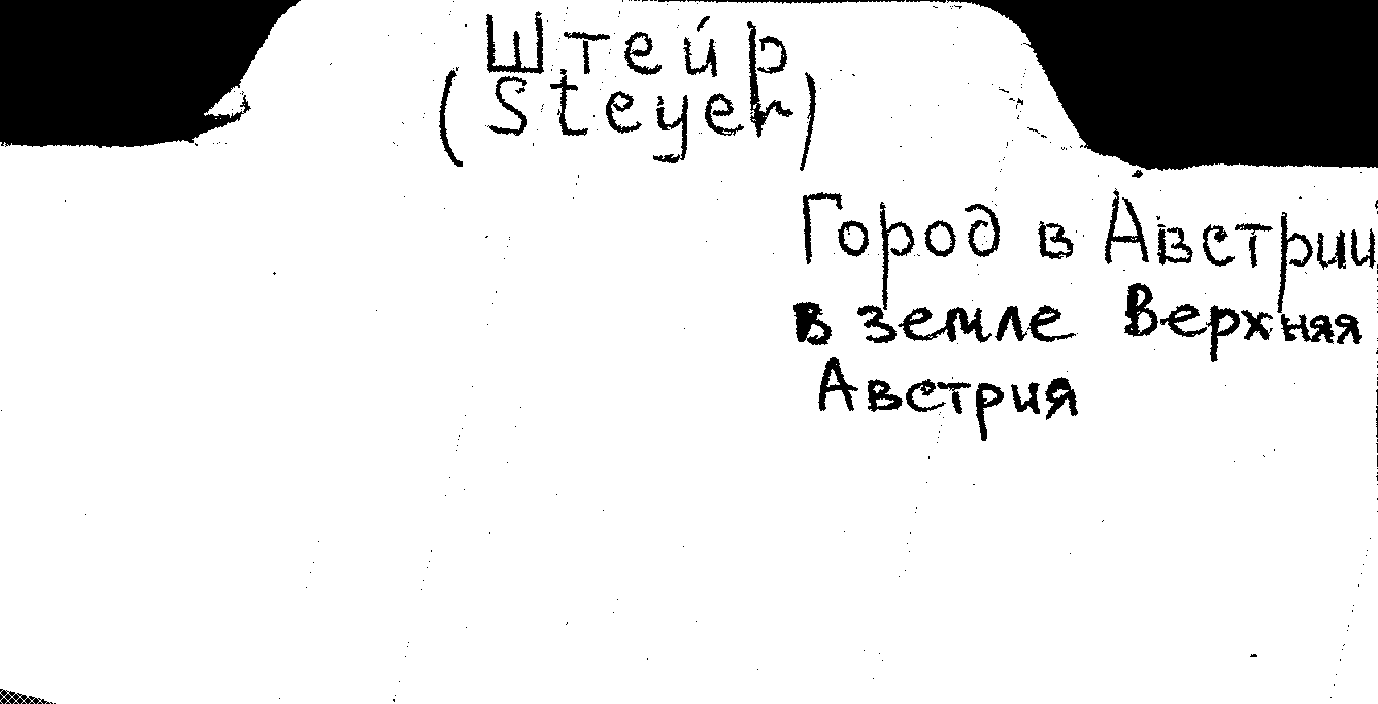 Штейр
(Steyer)
Город в Австрии
в земле Верхняя
Австрия